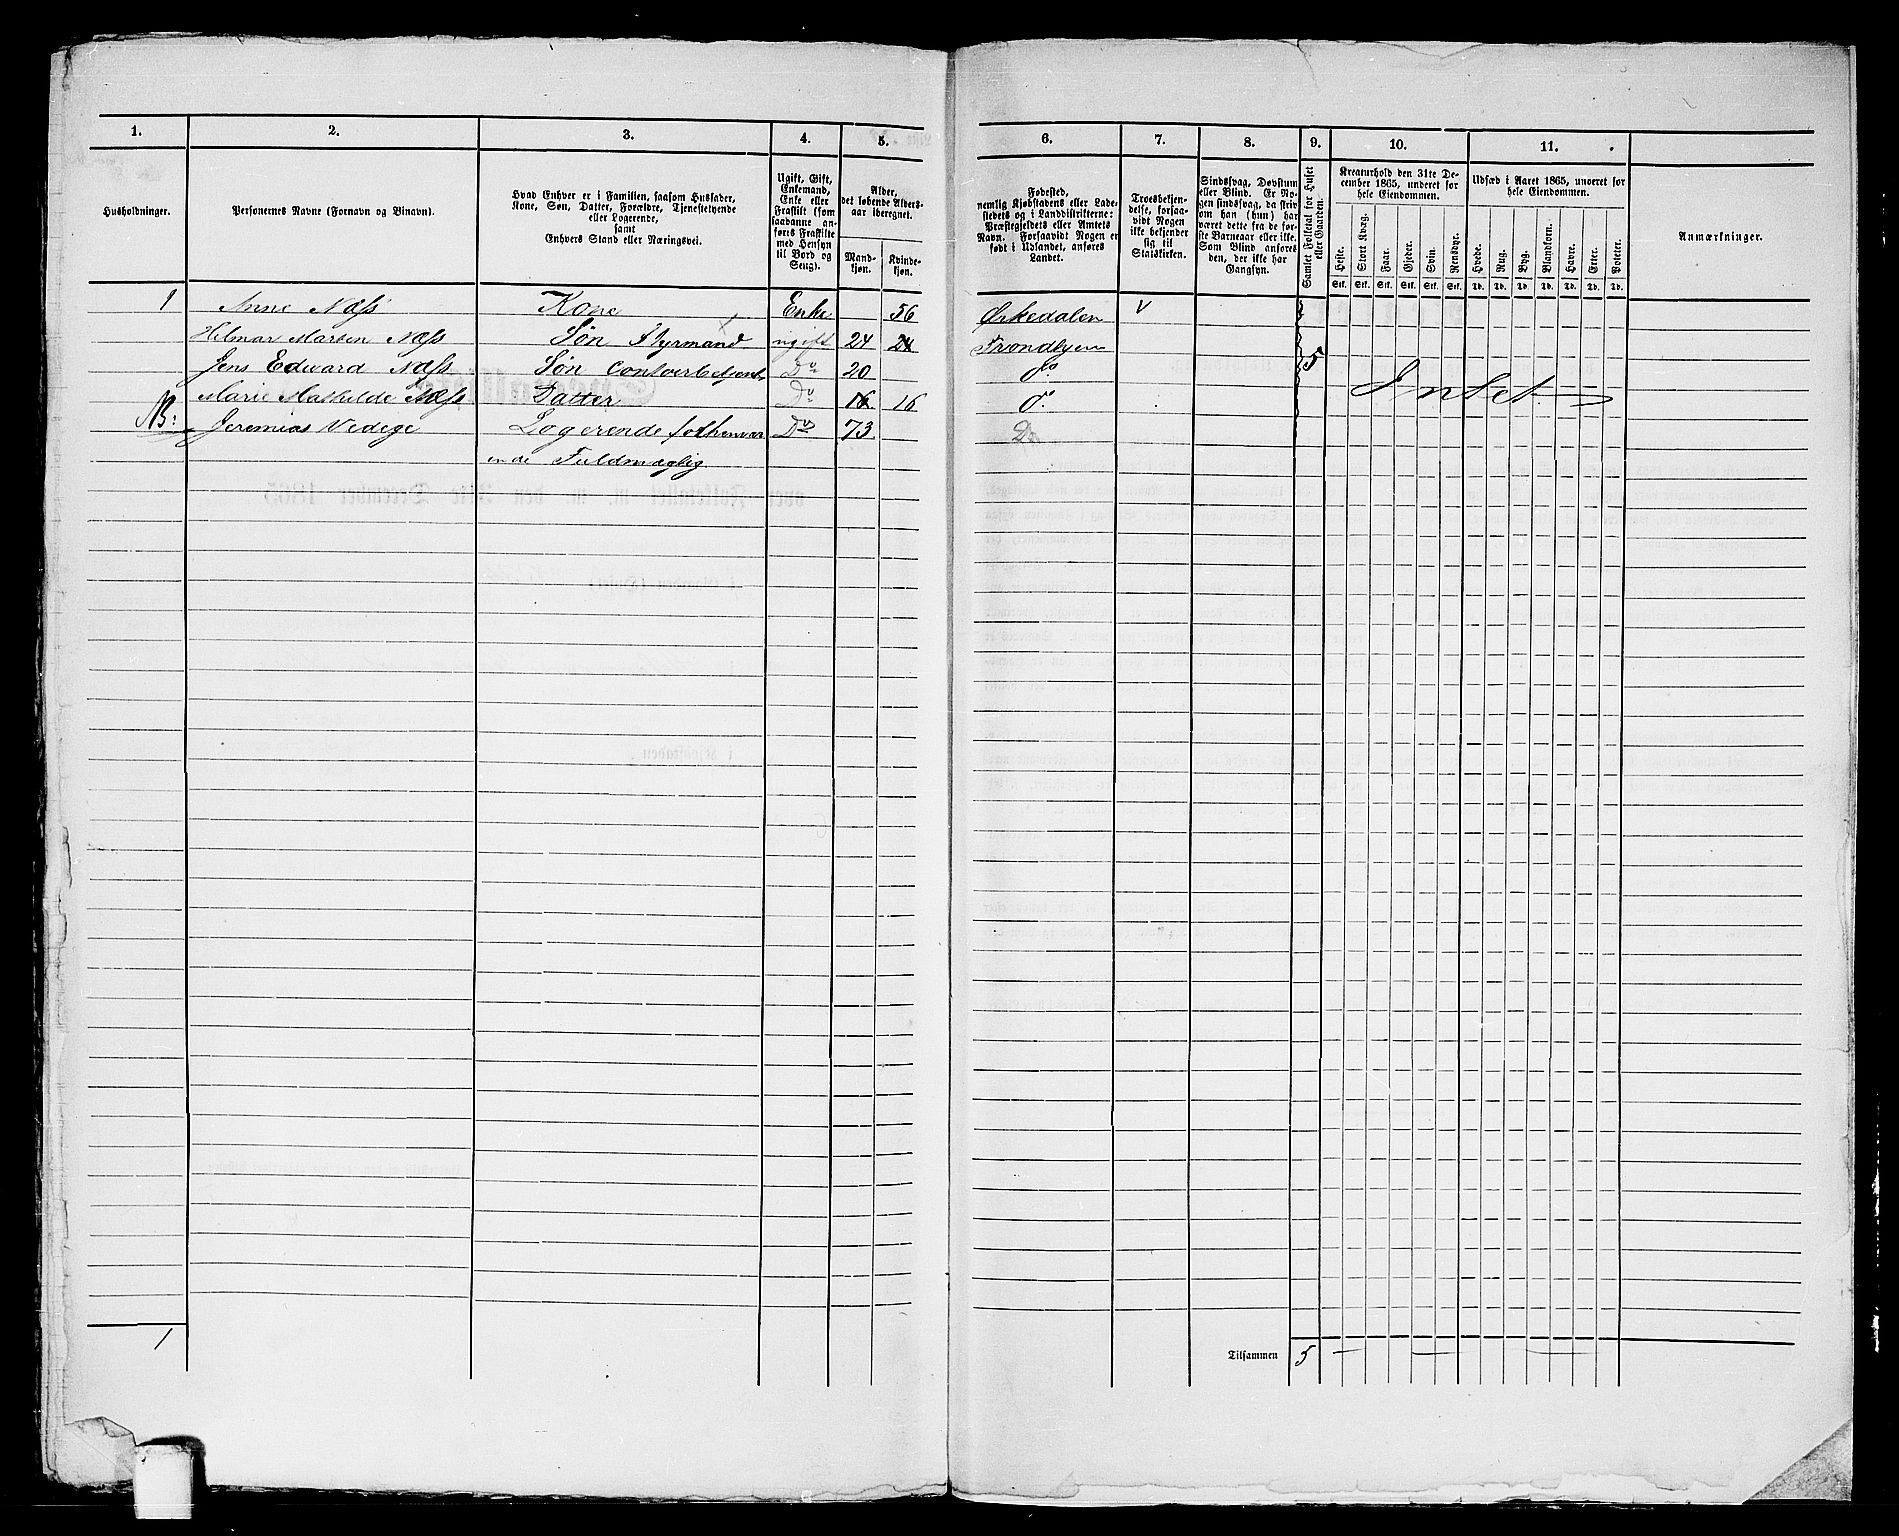 1.
2.
3.
4.
5.
Husholdninger.
Personernes Navne (Fornavn og Binavn).
Hvad Enhver er i Familien, saasom Husfader,
Kone, Søn, Datter, Forældre, Tjenestetyende
eller Logerende,
samt
Enhvers Stand eller Næringsvei.
Ugift, Gift,
Enkemand,
Enke eller
Fraskilt (som
saadanne an-
føres Fraskilte
med Hensyn
til Bord og
Seng).
Alder,
det løbende Alders-
aar iberegnet.
Mand-
kjøn.
Kvinde-
kjøn.
1 Anne Næss Kone Enke 56
Helmar Marten Næss Søn Styrmand ugift 24 24
Jens Edward Næss Søn Contoirbetjent Do 20
Marie Mathilde Næss Datter Do 16 16
NB: Jeremias Vedege Logerende forhenvær
ende Fuldmægtig Do 73
1
6.
7.
8.
9.
10.
11.
Fødested,
nemlig Kjøbstadens eller Lade-
stedets og i Landdistrikterne:
Præstegjeldets eller Amtets
Navn. Forsaavidt Nogen er
født i Udlandet, anføres
Landet.
Troesbekjen-
delse, forsaa-
vidt Nogen
ikke bekjender
sig til
Statskirken.
Sindssvag, Døvstum
eller Blind. Er No-
gen sindssvag, da skriv
om han (hun) har
været dette fra de før-
ste Barneaar eller ikke.
Som Blind anføres
den, der ikke har
Gangsyn.
Samlet Folketal for Huset
eller Gaarden.
Kreaturhold den 31te De-
cember 1865, underet for
hele Eiendommen.
Heste.
Stort Kvæg.
Faar.
Gjeder.
Svin.
Rensdyr.
Stk. Stk. Stk. Stk. Stk. Stk.
Udsæd i Aaret 1865, unoeret for
hele Eiendommen.
Hvede.
Rug.
Byg.
Blandkorn.
Havre.
Erter.
Poteter.
Td. Td. Td. Td. Td. Td. Td.
Anmærkninger.
Ørkedalen V
Trondhjem
do 5
do Intet
Do
Tilsammen 5